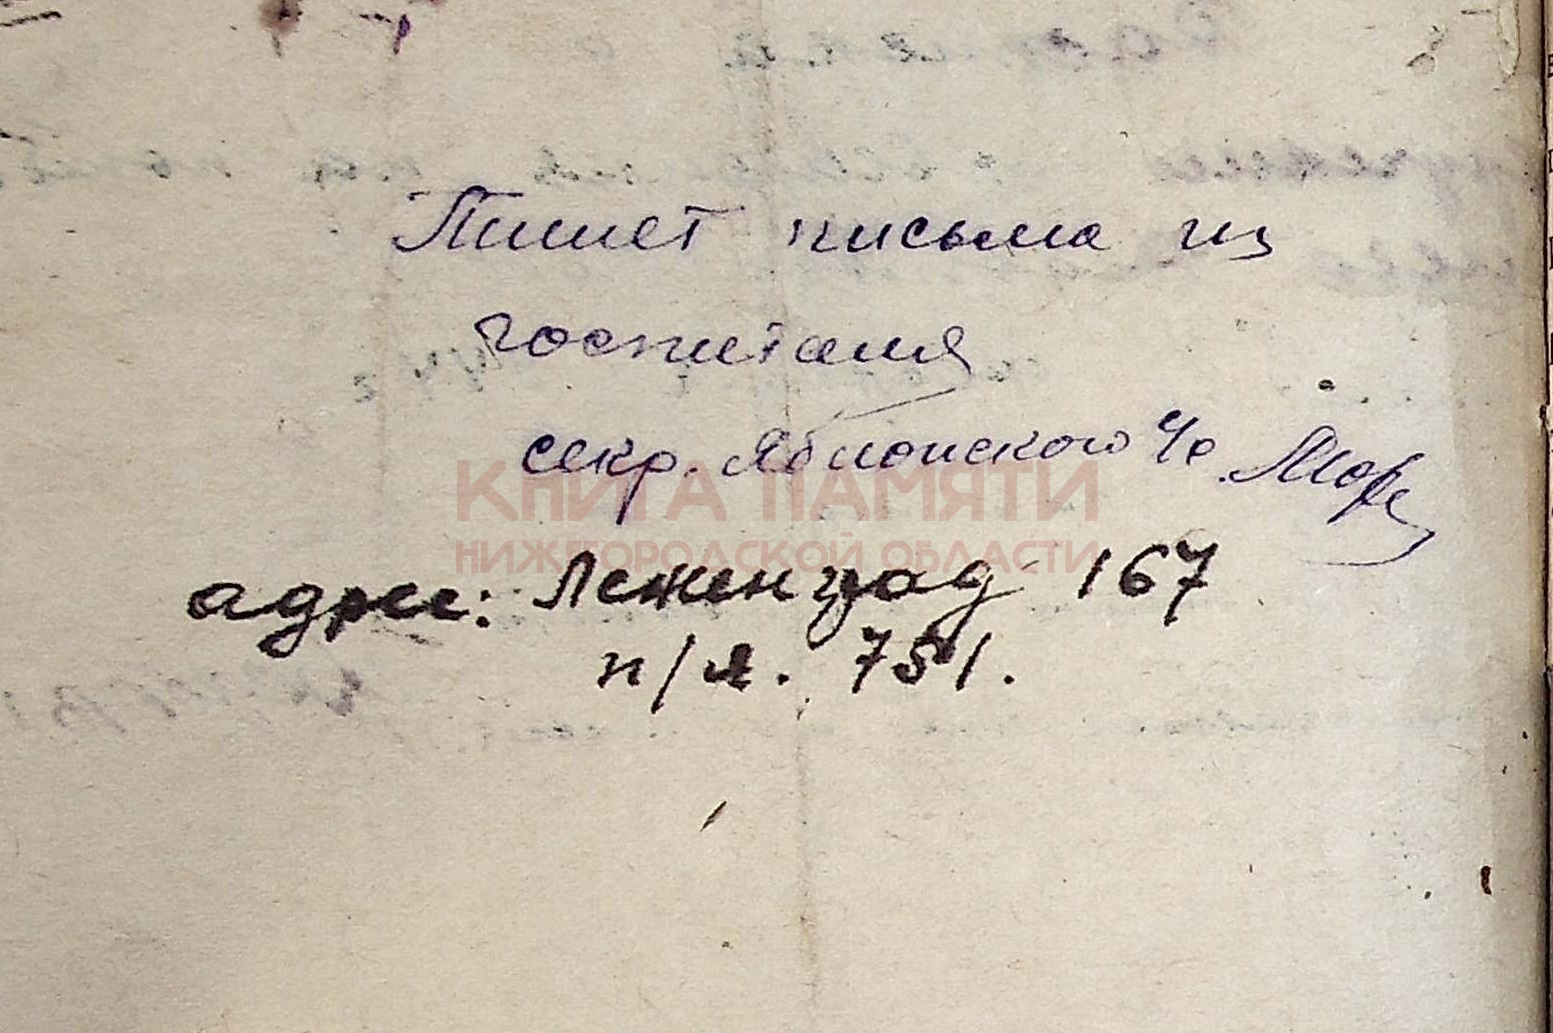 Пишет письма из
госпиталя
секр. Яблонского с/с
адрес: Ленинград 167
п/я. 751.
КНИГА ПАМЯТИ
НИЖЕГОРОДСКОЙ ОБЛАСТИ